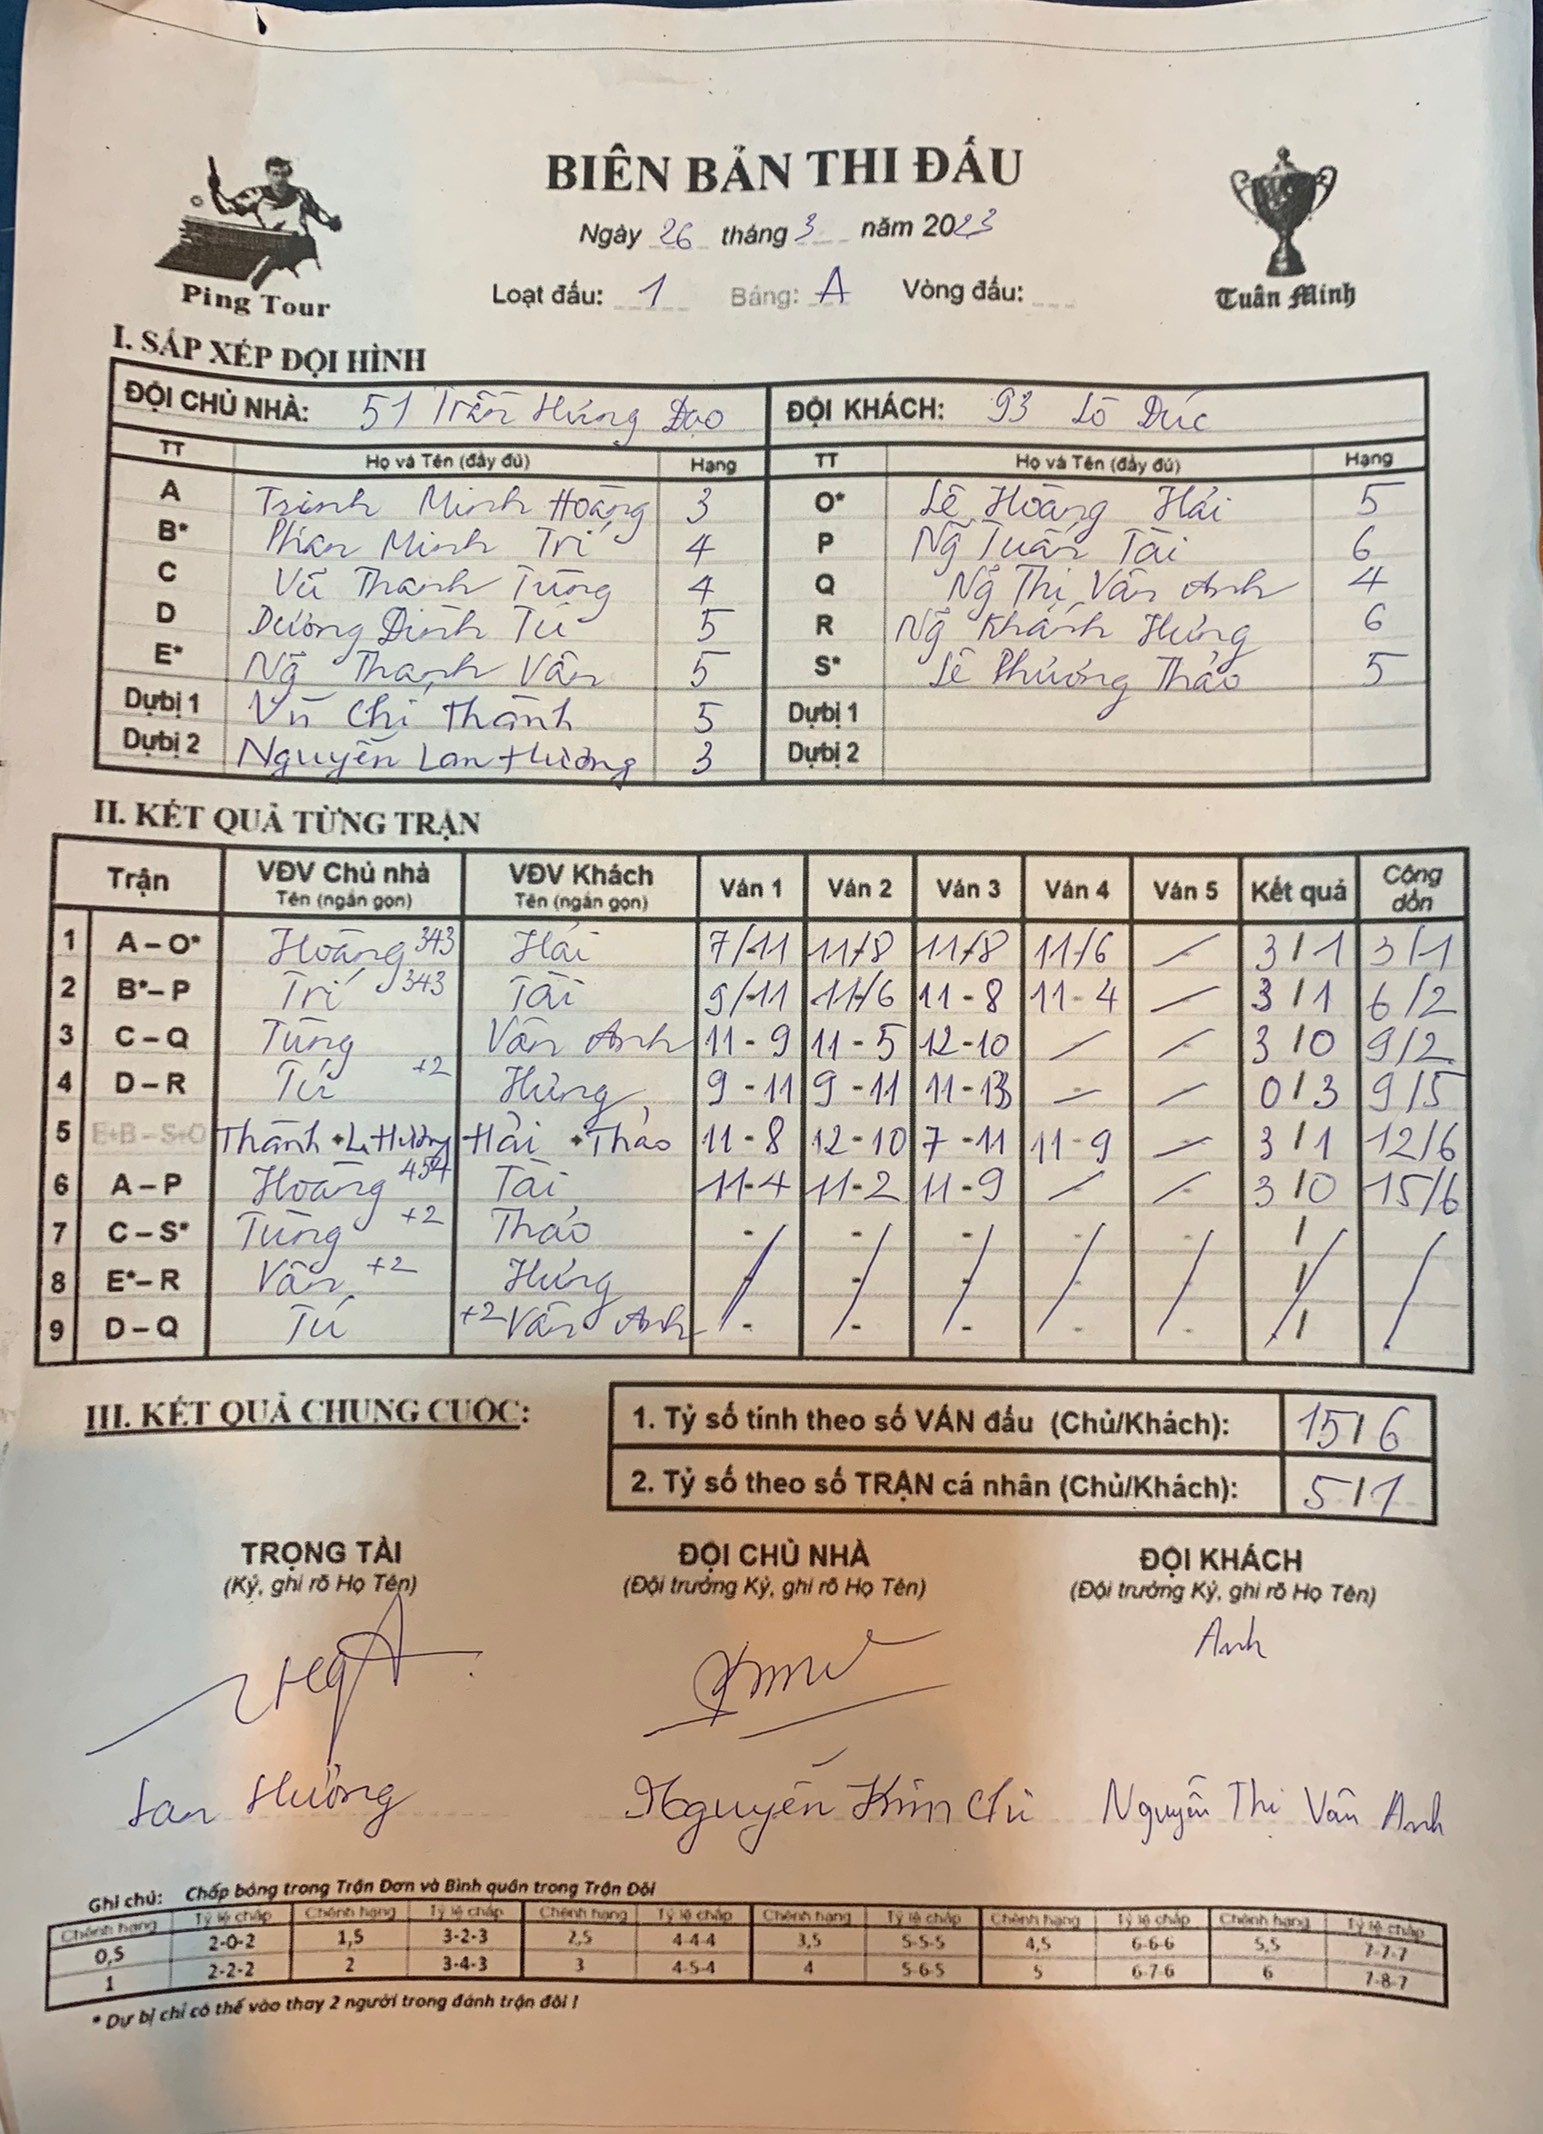 BIÊN BẢN THI ĐẤU
Ngày 26 tháng 3 năm 2023
Loạt đấu: 1 Bảng: A Vòng đấu:
Ping Tour
Tuân Minh
I. SẮP XẾP ĐỘI HÌNH
ĐỘI CHỦ NHÀ: 51 Trần Hưng Đạo ĐỘI KHÁCH: 93 Lò Đúc
TT Họ và Tên (đầy đủ) Hạng TT Họ và Tên (đầy đủ) Hạng
A Trịnh Minh Hoàng 3 O* Lê Hoàng Hải 5
B* Phan Minh Trí 4 P Ng̃ Tuấn Tài 6
C Vũ Thanh Tùng 4 Q Ng̃ Thị Vân Anh 4
D Dương Đình Tú 5 R Ng̃ Khánh Hưng 6
E* Ng̃ Thanh Vân 5 S* Lê Phương Thảo 5
Dự bị 1 Vũ Chí Thành 5 Dự bị 1
Dự bị 2 Nguyễn Lan Hương 3 Dự bị 2
II. KẾT QUẢ TỪNG TRẬN
Trận VĐV Chủ nhà Tên (ngắn gọn) VĐV Khách Tên (ngắn gọn) Ván 1 Ván 2 Ván 3 Ván 4 Ván 5 Kết quả Cộng dồn
1 A – O* Hoàng 343 Hải 7/11 11/8 11/8 11/6 - 3 / 1 3/1
2 B* – P Trí 343 Tài 9/11 11/6 11 - 8 11 - 4 - 3 / 1 6/2
3 C – Q Tùng Vân Anh 11 - 9 11 - 5 12 - 10 - - 3 / 0 9/2
4 D – R Tú +2 Hưng 9 - 11 9 - 11 11 - 13 - - 0 / 3 9/5
5 E+B – S+O Thành + L. Hương Hải + Thảo 11 - 8 12 - 10 7 - 11 11 - 9 - 3 / 1 12/6
6 A – P Hoàng 454 Tài 11 - 4 11 - 2 11 - 9 - - 3 / 0 15/6
7 C – S* Tùng +2 Thảo - - - - - /
8 E* – R Vân +2 Hưng - - - - - /
9 D – Q Tú +2 Vân Anh - - - - - /
III. KẾT QUẢ CHUNG CUỘC:
1. Tỷ số tính theo số VÁN đấu (Chủ/Khách): 15 / 6
2. Tỷ số theo số TRẬN cá nhân (Chủ/Khách): 5 / 1
TRỌNG TÀI ĐỘI CHỦ NHÀ ĐỘI KHÁCH
(Ký, ghi rõ Họ Tên) (Đội trưởng Ký, ghi rõ Họ Tên) (Đội trưởng Ký, ghi rõ Họ Tên)
Anh
Lan Hương Nguyễn Kim Chi Nguyễn Thị Vân Anh
Ghi chú: Chấp bóng trong Trận Đơn và Bình quân trong Trận Đôi
Chênh hạng Tỷ lệ chấp Chênh hạng Tỷ lệ chấp Chênh hạng Tỷ lệ chấp Chênh hạng Tỷ lệ chấp Chênh hạng Tỷ lệ chấp Chênh hạng Tỷ lệ chấp
0,5 2-0-2 1,5 3-2-3 2,5 4-4-4 3,5 5-5-5 4,5 6-6-6 5,5 7-7-7
1 2-2-2 2 3-4-3 3 4-5-4 4 5-6-5 5 6-7-6 6 7-8-7
* Dự bị chỉ có thể vào thay 2 người trong đánh trận đôi !